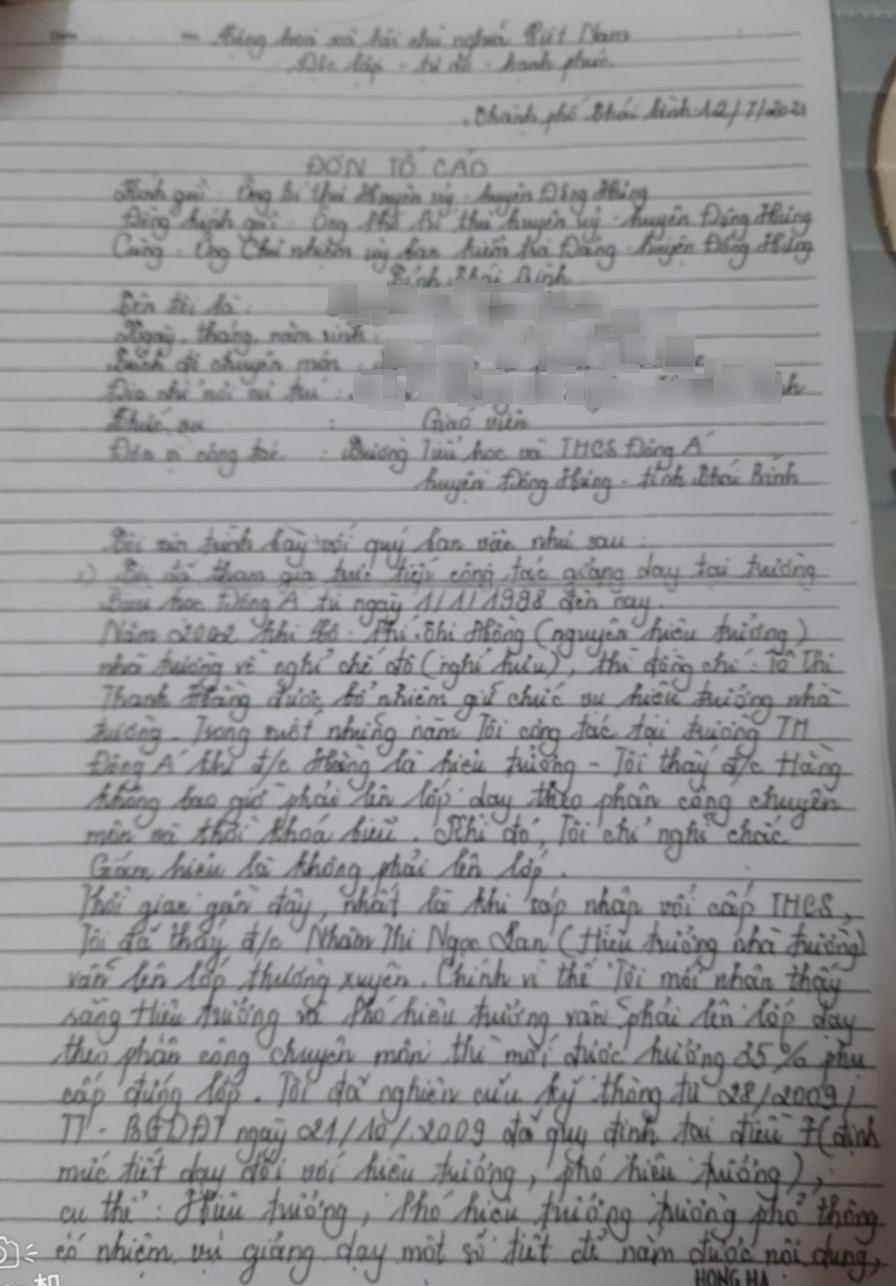 Cộng hoà xã hội chủ nghĩa Việt Nam
Độc lập - tự do - hạnh phúc
Thành phố Thái Bình 12/7/2021
ĐƠN TỐ CÁO
Kính gửi : Ông bí thư Huyện uỷ - huyện Đông Hưng
Đồng kính gửi : Ông Phó Bí thư huyện uỷ - huyện Đông Hưng
Cùng : Ông Chủ nhiệm uỷ ban kiểm tra Đảng - huyện Đông Hưng
Tỉnh Thái Bình
Tên tôi là :
Ngày, tháng, năm sinh :
Trình độ chuyên môn :
Địa chỉ nơi cư trú :
Chức vụ : Giáo viên
Đơn vị công tác : Trường Tiểu học và THCS Đông Á
huyện Đông Hưng - tỉnh Thái Bình
Tôi xin trình bày với quý ban việc như sau :
1) Tôi đã tham gia trực tiếp công tác giảng dạy tại trường
Tiểu học Đông Á từ ngày 1/1/1998 đến nay.
Năm 2002 khi Thị Hồng (nguyên hiệu trưởng)
nhà trường về nghỉ chế độ (nghỉ hưu), thì đồng chí : Tô Thị
Thanh Hằng được bổ nhiệm giữ chức vụ hiệu trưởng nhà
trường. Trong suốt những năm Tôi công tác tại trường TH
Đông Á khi đ/c Hằng là hiệu trưởng - Tôi thấy đ/c Hằng
không bao giờ phải lên lớp dạy theo phân công chuyên
môn và thời khoá biểu. Khi đó, Tôi chỉ nghĩ chắc
Giám hiệu là không phải lên lớp.
Thời gian gần đây, nhất là khi sáp nhập với cấp THCS,
Tôi đã thấy đ/c Nhâm Thị Ngọc Lan (Hiệu trưởng nhà trường)
vẫn lên lớp thường xuyên. Chính vì thế Tôi mới nhận thấy
rằng Hiệu trưởng và Phó hiệu trưởng vẫn phải lên lớp dạy
theo phân công chuyên môn thì mới được hưởng 35% phụ
cấp đứng lớp. Tôi đã nghiên cứu kỹ thông tư 28/2009/
TT - BGDĐT ngày 21/10/2009 đã quy định tại điều 7 (định
mức tiết dạy đối với hiệu trưởng, phó hiệu trưởng),
cụ thể : Hiệu trưởng, Phó hiệu trưởng trường phổ thông
có nhiệm vụ giảng dạy một số tiết để nắm được nội dung,
HONG HA